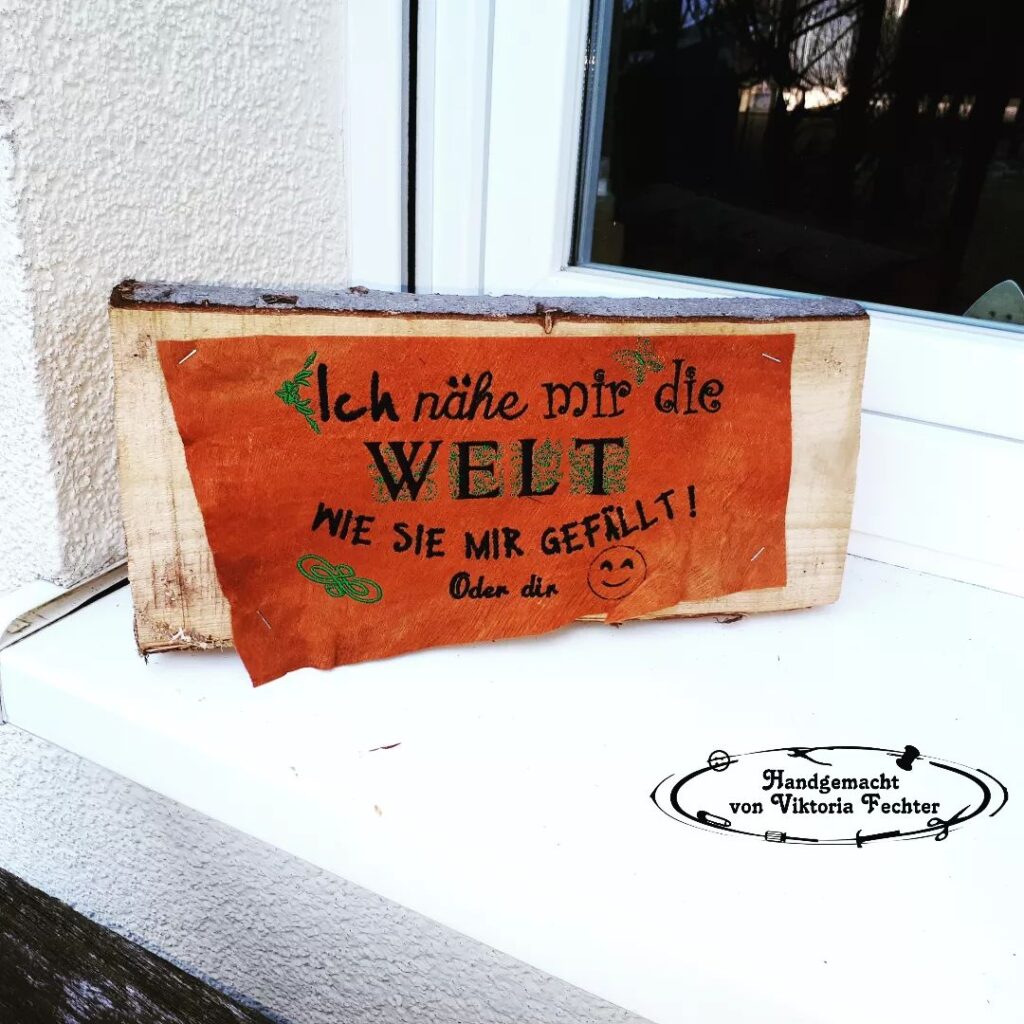 Ich nähe mir die
WELT
WIE SIE MIR GEFÄLLT!
Oder dir
Handgemacht
von Viktoria Fechter